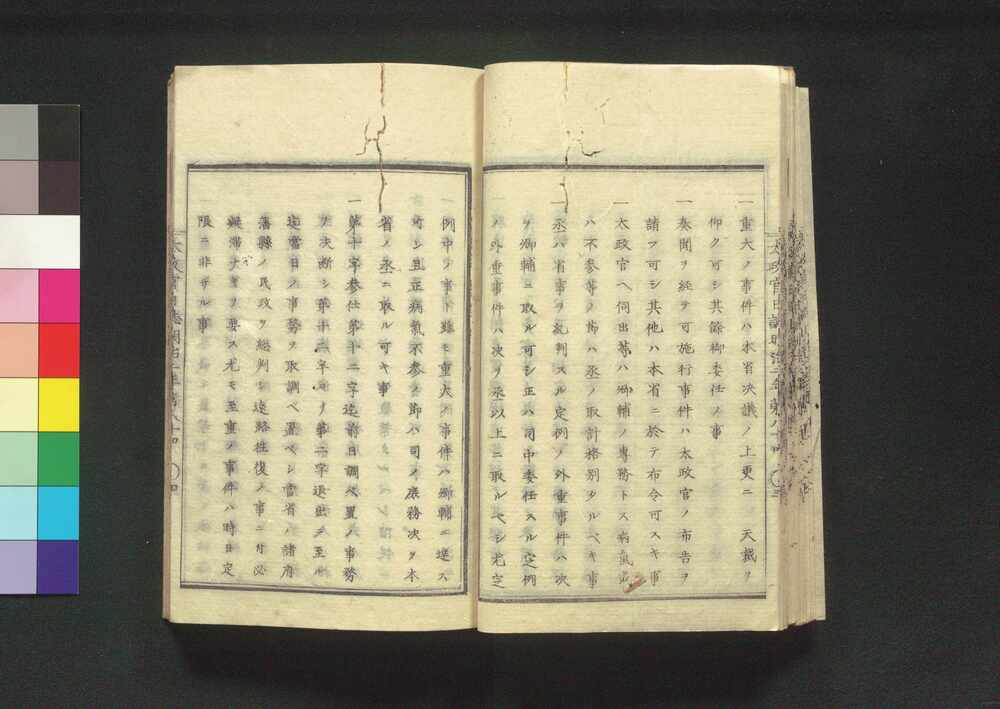 一重大ノ事件ハ本省决議ノ上更ニ 天裁ヲ
仰クヘシ其餘卿委任ノ事
一奏聞ヲ経ヲ可施行事件ハ太政官ノ布告ヲ
請フ可シ其他ハ本省ニ於テ布令可スキ事
一太政官ヘ伺出等ハ卿輔ノ専務トス病氣
ハ不参等ノ節ハ丞ノ取計格別タルベキ事
一丞ハ省事ヲ糺判スル定例ノ外重事件ハ次
ヲ卿輔ニ取ル可シ正ハ司中委任スル定例
ノ外重事件ハ次ヲ丞以上ニ取ルベシ尤定
例中ノ事ト雖モ重大ノ事件ハ卿輔ニ達ス
可シ且正病氣不参ノ節ハ司ノ庶務次ヲ本
省ノ丞ニ取ル可キ事
一第十字参仕第十二字迄前日調ベ置ノ事務
ヲ决断シ第十二字ヨリ第二字退出ニ至ル
迄當日ノ事務ヲ取調ベ置ベシ當省ノ諸府
藩縣ノ民政ヲ総判シ遠路往復ノ事ニ付必
無滞ナキヲ要ス尤モ至重ノ事件ハ時日定
限ニ非ザル事